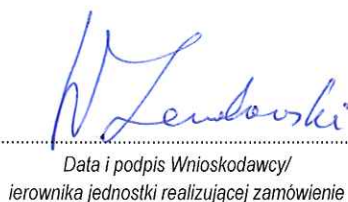 Data i podpis Wnioskodawcy/
ierownika jednostki realizującej zamówienie